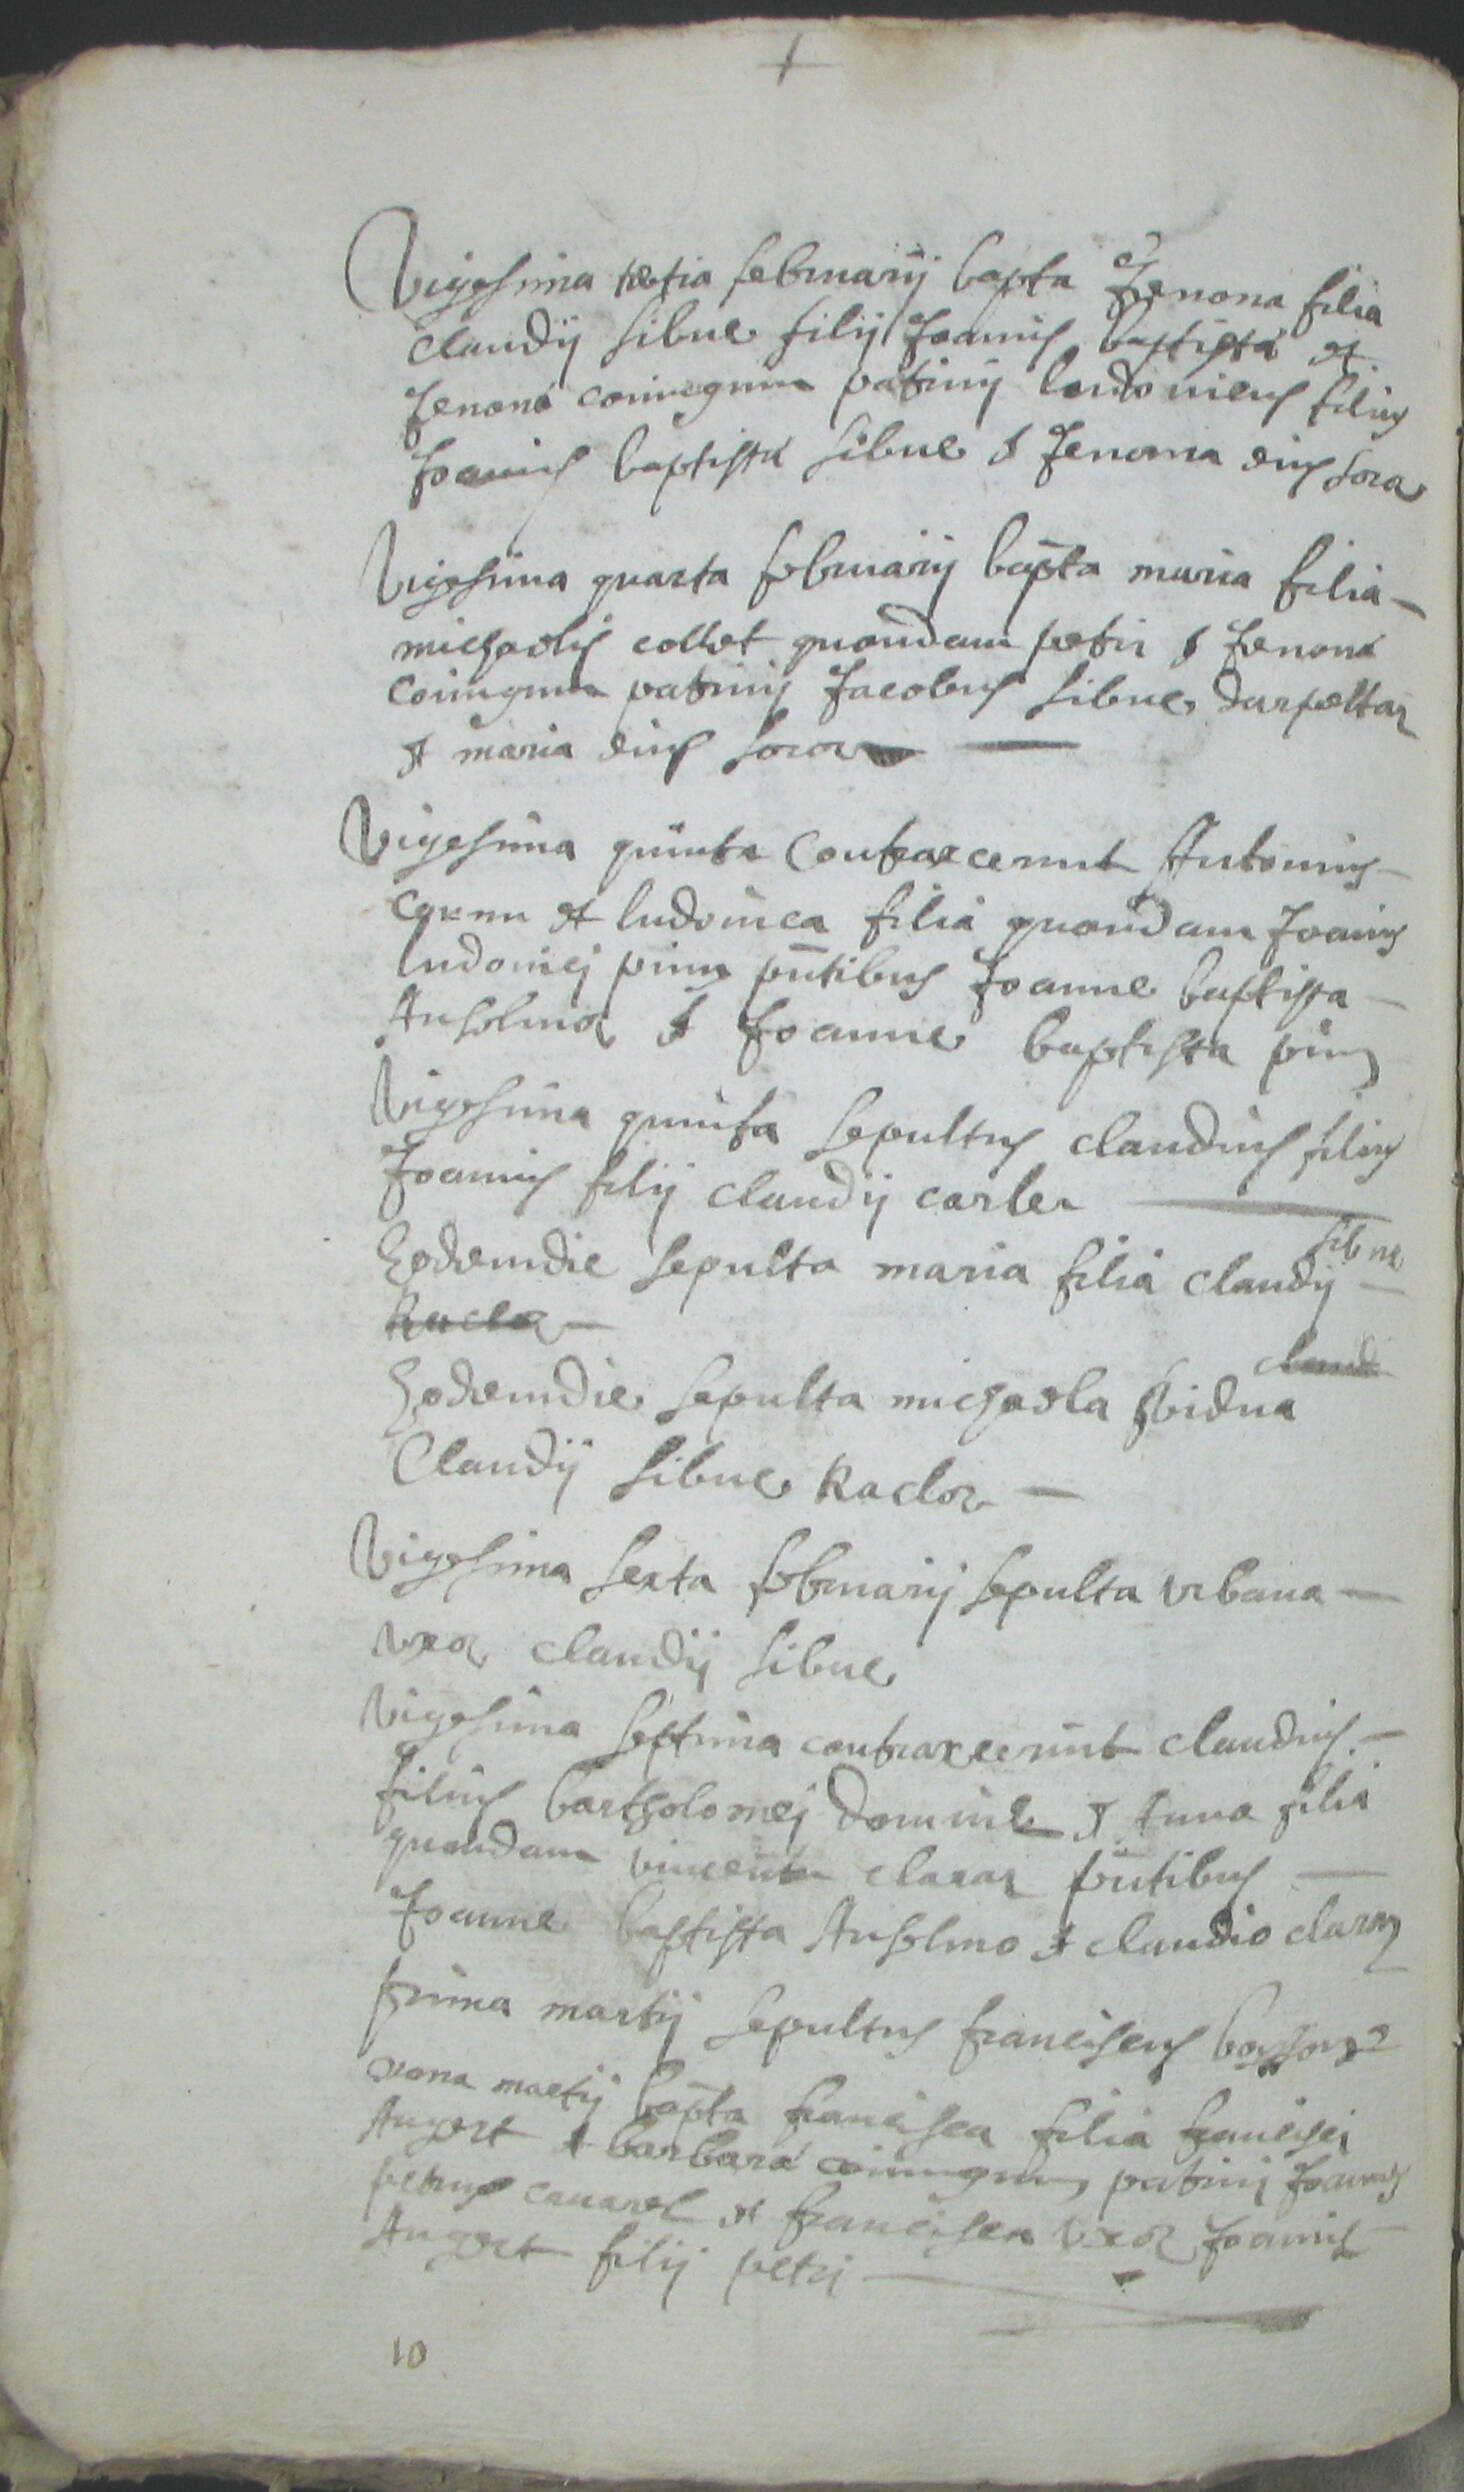 Vigesima tertia februarij bapta Jenona filia
Claudij sibue filij Joannis baptista et
Jenona coniugum patrinij Ludovicus filius
Joannis baptista sibue & Jenona eius soror
Vigesima quarta februarij bapta maria filia
michaelis collet quondam petri & Jenona
coniugum patrinij Jacobus sibue darpettaz
et maria eius soror
Vigesima quinta Contraxerunt Antonius
et ludovica filia quondam Joannis
ludovici pinn pntibus Joanne baptista
Anselmoz & Joanne baptista pinn
Vigesima quinta sepultus claudius filius
Joannis filij claudij carlez
Eodemdie sepulta maria filia claudij sibue
Racloz
Eodemdie sepulta michaela vidua claud
Claudij sibue Racloz
Vigesima sexta februarij sepulta urbana
uxor claudij sibue
Vigesima septima contraxerunt claudius
filius bartholomej & Anna filia
quondam vincentii claraz pntibus
Joanne baptista Anselmo & claudio claraz
prima martij sepultus franciscus
nona martij bapta francisca filia francisci
Angert & barbara coniugum patrinij Joannes
petrus et francisca uxor Joannis
Angert filij petri
10